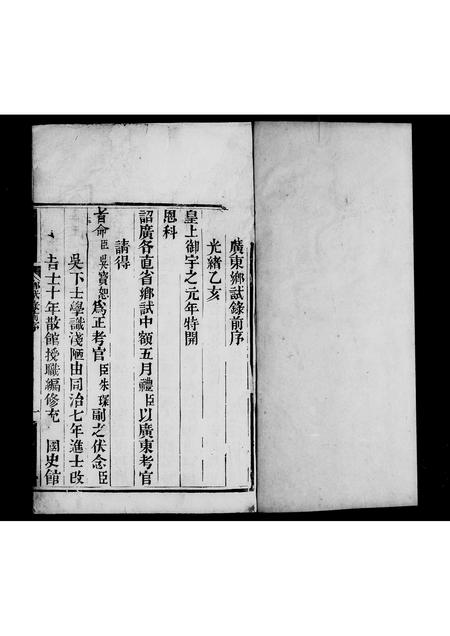 廣東鄉試錄前序
光緒乙亥
皇上御宇之元年特開
恩科
詔廣各直省鄉試中額五月禮臣以廣東考官
請得
旨命臣吳寶恕爲正考官臣朱琛副之伏念臣
吳下士學識淺陋由同治七年進士改
吉士十年散館授職編修充 國史館